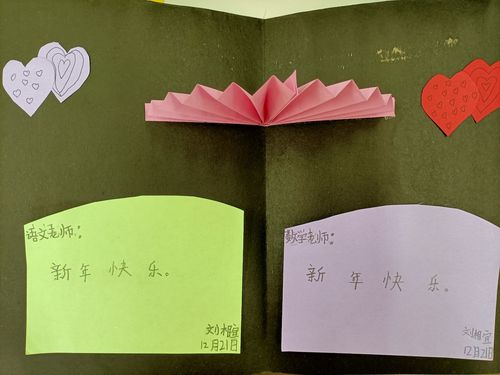 语文老师:
新年快乐。
刘相宜
12月21日
数学老师:
新年快乐。
刘相宜
12月21日